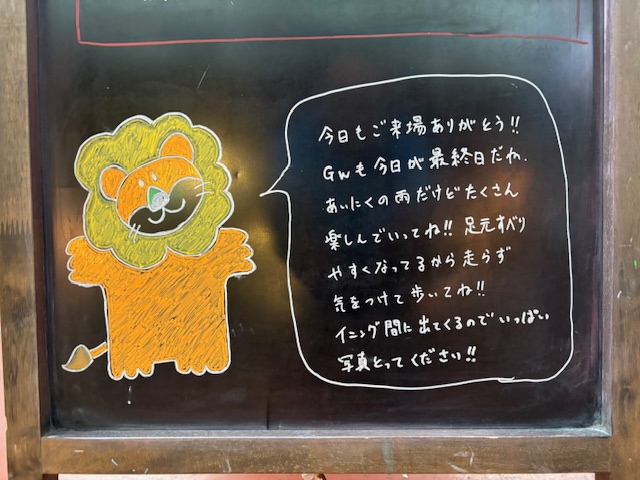 今日もご来場ありがとう!!
GWも今日が最終日だね.
あいにくの雨だけどたくさん
楽しんでいってね!! 足元すべり
やすくなってるから走らず
気をつけて歩いてね!!
イニング間に出てくるのでいっぱい
写真とってください!!